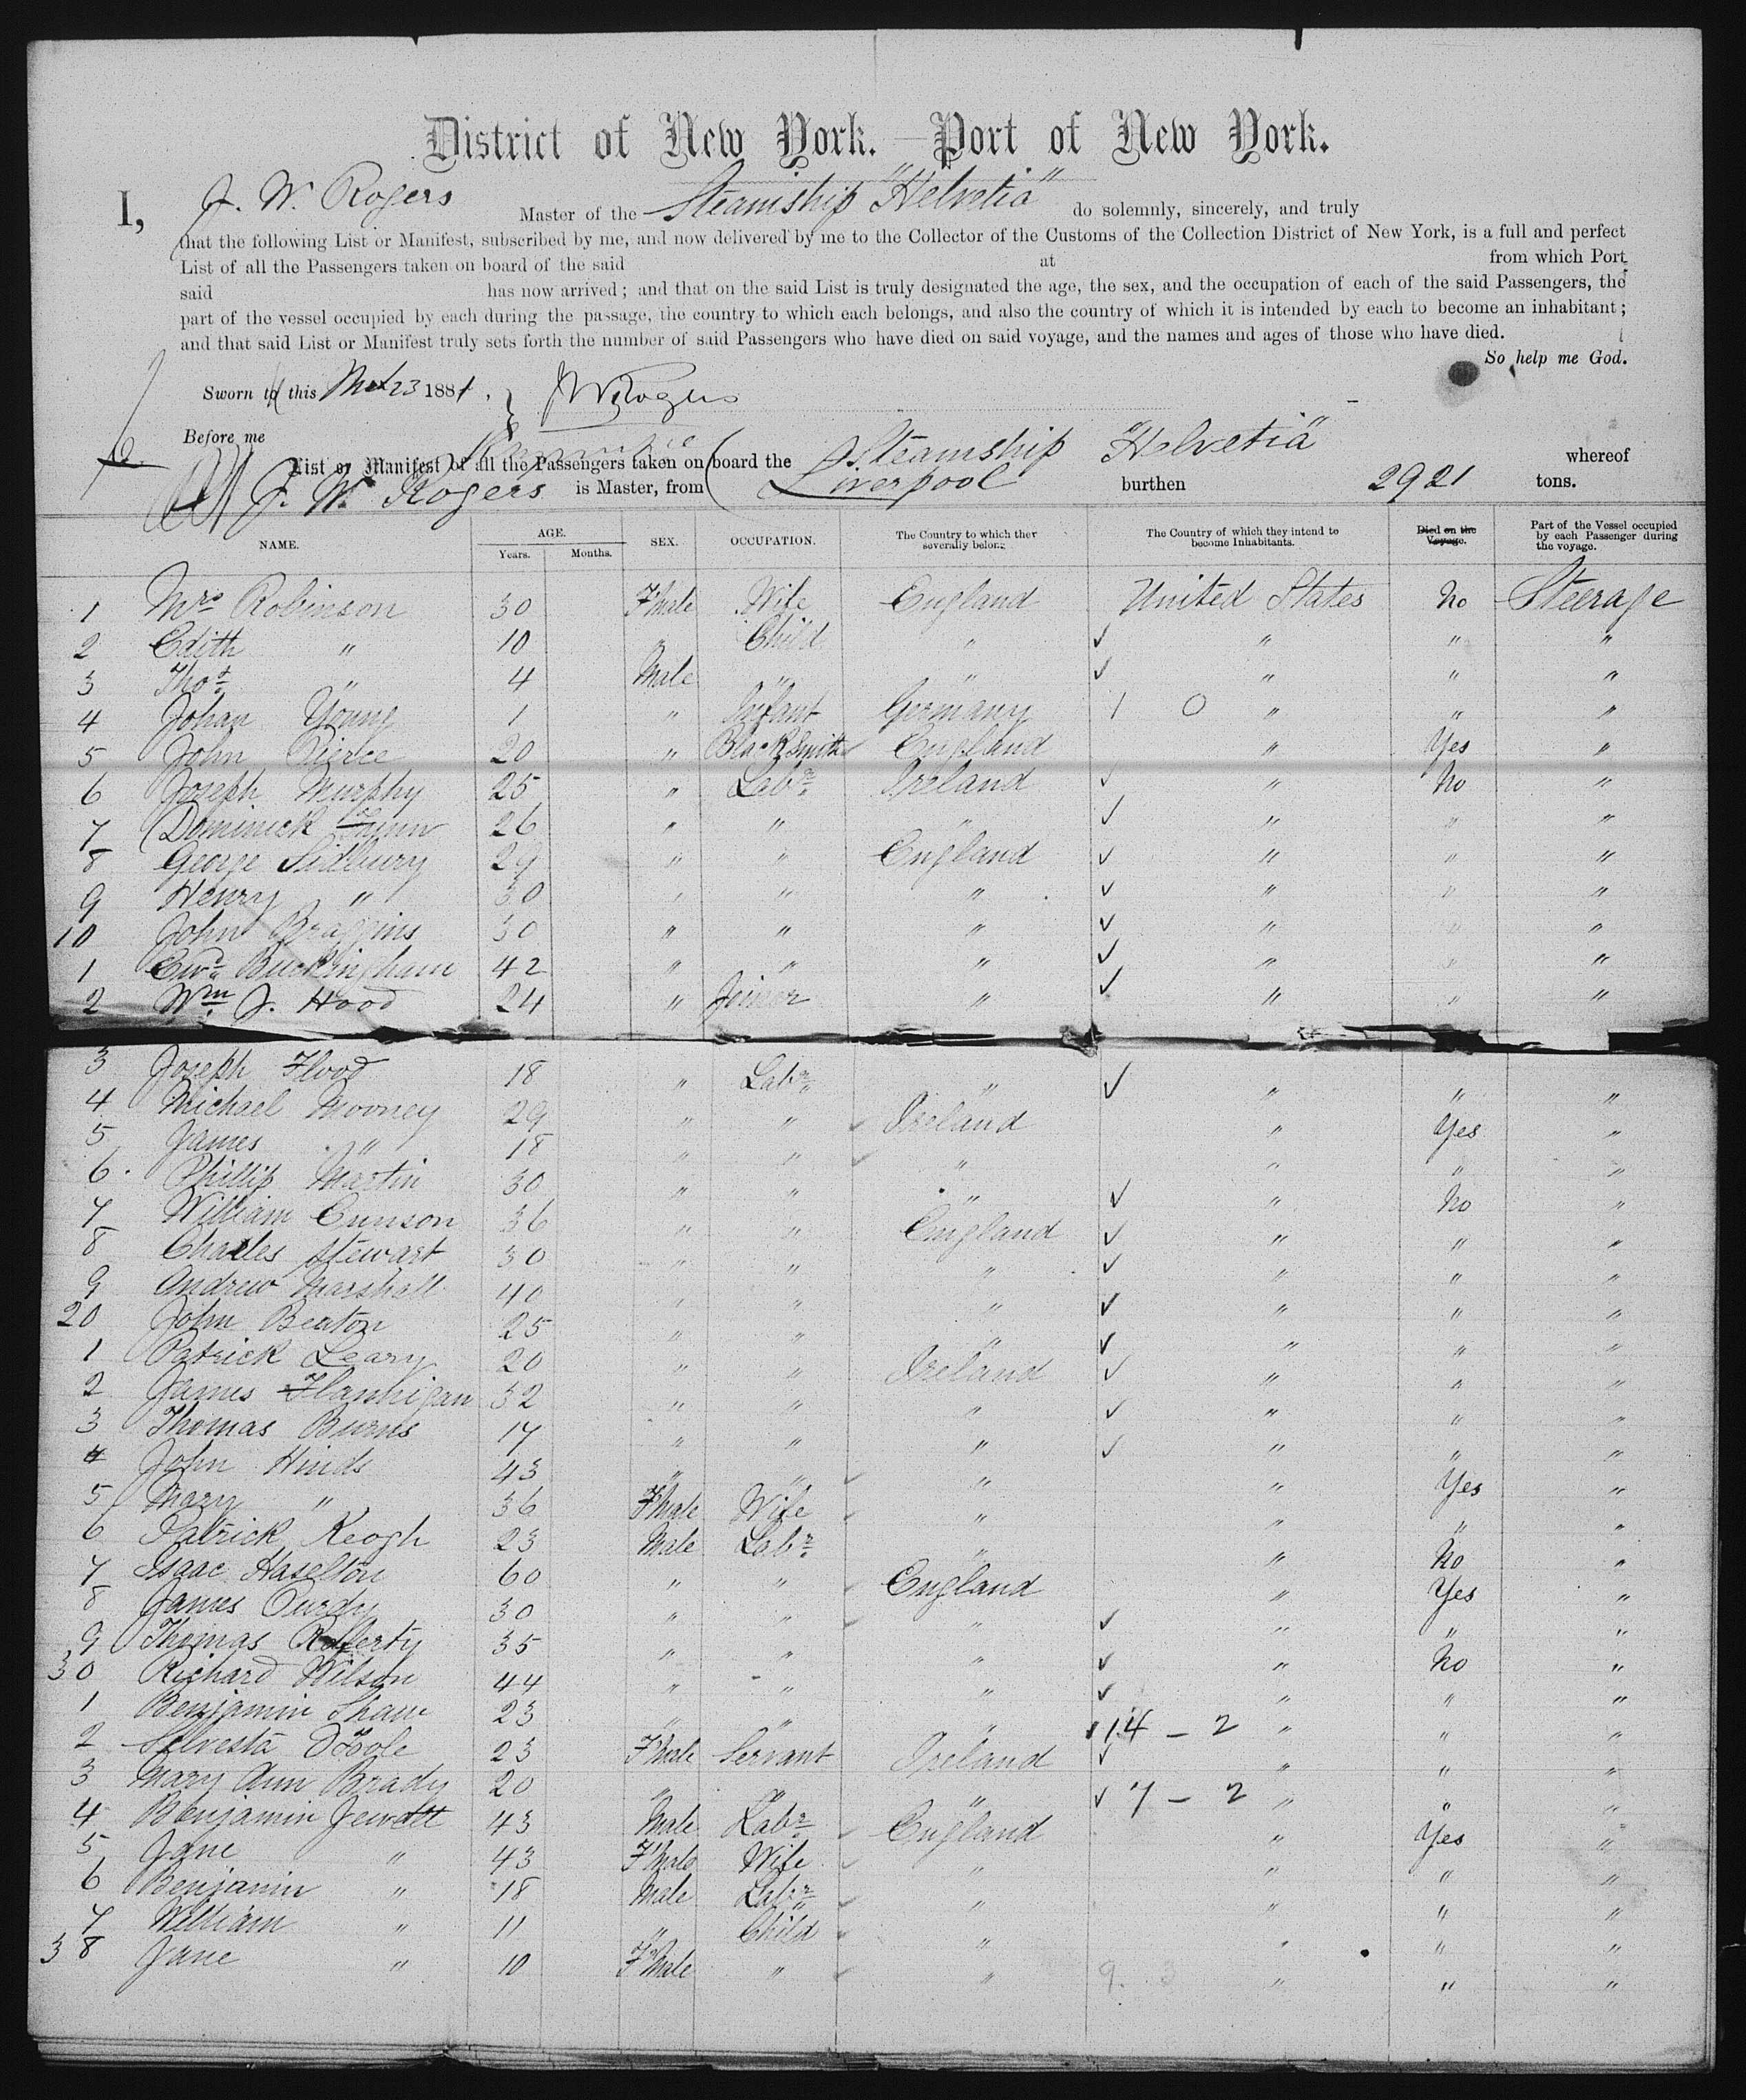 District of New York.—Port of New York.
I, J. W. Rogers Master of the Steamship "Helvetia" do solemnly, sincerely, and truly
that the following List or Manifest, subscribed by me, and now delivered by me to the Collector of the Customs of the Collection District of New York, is a full and perfect
List of all the Passengers taken on board of the said at from which Port
said has now arrived; and that on the said List is truly designated the age, the sex, and the occupation of each of the said Passengers, the
part of the vessel occupied by each during the passage, the country to which each belongs, and also the country of which it is intended by each to become an inhabitant;
and that said List or Manifest truly sets forth the number of said Passengers who have died on said voyage, and the names and ages of those who have died.
So help me God.
Sworn to this 23 1881. J W Rogers
Before me
List or Manifest of all the Passengers taken on board the Steamship "Helvetia" whereof
J. W. Rogers is Master, from Liverpool burthen 2921 tons.
NAME. AGE. Years. Months. SEX. OCCUPATION. The Country to which they severally belong. The Country of which they intend to become Inhabitants. Died on the Voyage. Part of the Vessel occupied by each Passenger during the voyage.
1 Mrs Robinson 30 Fmale Wife England United States No Steerage
2 Edith " 10 " Child " ✓ " " "
3 Thos " 4 Male " " ✓ " " "
4 Johan Young 1 " Infant Germany 1 0 " " "
5 John Pierce 20 " BlackSmith England " Yes "
6 Joseph Murphy 25 " Labr Ireland ✓ " No "
7 Dominick 26 " " " ✓ " " "
8 George Sidbury 29 " " England ✓ " " "
9 Henry " 30 " " " ✓ " " "
10 John Braggins 30 " " " ✓ " " "
1 Edwd Buckingham 42 " " " ✓ " " "
2 Wm J. Hood 24 " Joiner " ✓ " " "
3 Joseph Flood 18 " Labr " ✓ " " "
4 Michael Mooney 29 " " ✓ Ireland " Yes "
5 James " 18 " " ✓ " " " "
6 Phillip Martin 30 " " " ✓ " No "
7 William Cunson 36 " " England ✓ " " "
8 Charles Stewart 30 " " " ✓ " " "
9 Andrew Marshall 40 " " " ✓ " " "
20 John Beaton 25 " " " ✓ " " "
1 Patrick Leary 20 " " Ireland ✓ " " "
2 James Flannigan 32 " " " ✓ " " "
3 Thomas Burns 17 " " " ✓ " " "
4 John Hinds 43 " " ✓ " " Yes "
5 Mary " 36 Fmale Wife ✓ " " " "
6 Patrick Keogh 23 Male Labr " " No "
7 Isaac Haselton 60 " " ✓ England " Yes "
8 James Purdy 30 " " ✓ " ✓ " " "
9 Thomas Rafferty 35 " " " ✓ " No "
30 Richard Wilson 44 " " " ✓ " " "
1 Benjamin Shaw 23 " " " 14 - 2 " " "
2 Silvesta O'Toole 23 Fmale Servant Ireland ✓ " " "
3 Mary Ann Brady 20 " " " ✓ 7 - 2 " " "
4 Benjamin Jewett 43 Male Labr ✓ England " Yes "
5 Jane " 43 Fmale Wife ✓ " " " "
6 Benjamin " 18 Male Labr ✓ " " " "
7 William " 11 " Child ✓ " " " "
38 Jane " 10 FMale " ✓ " 9. 3 " " "